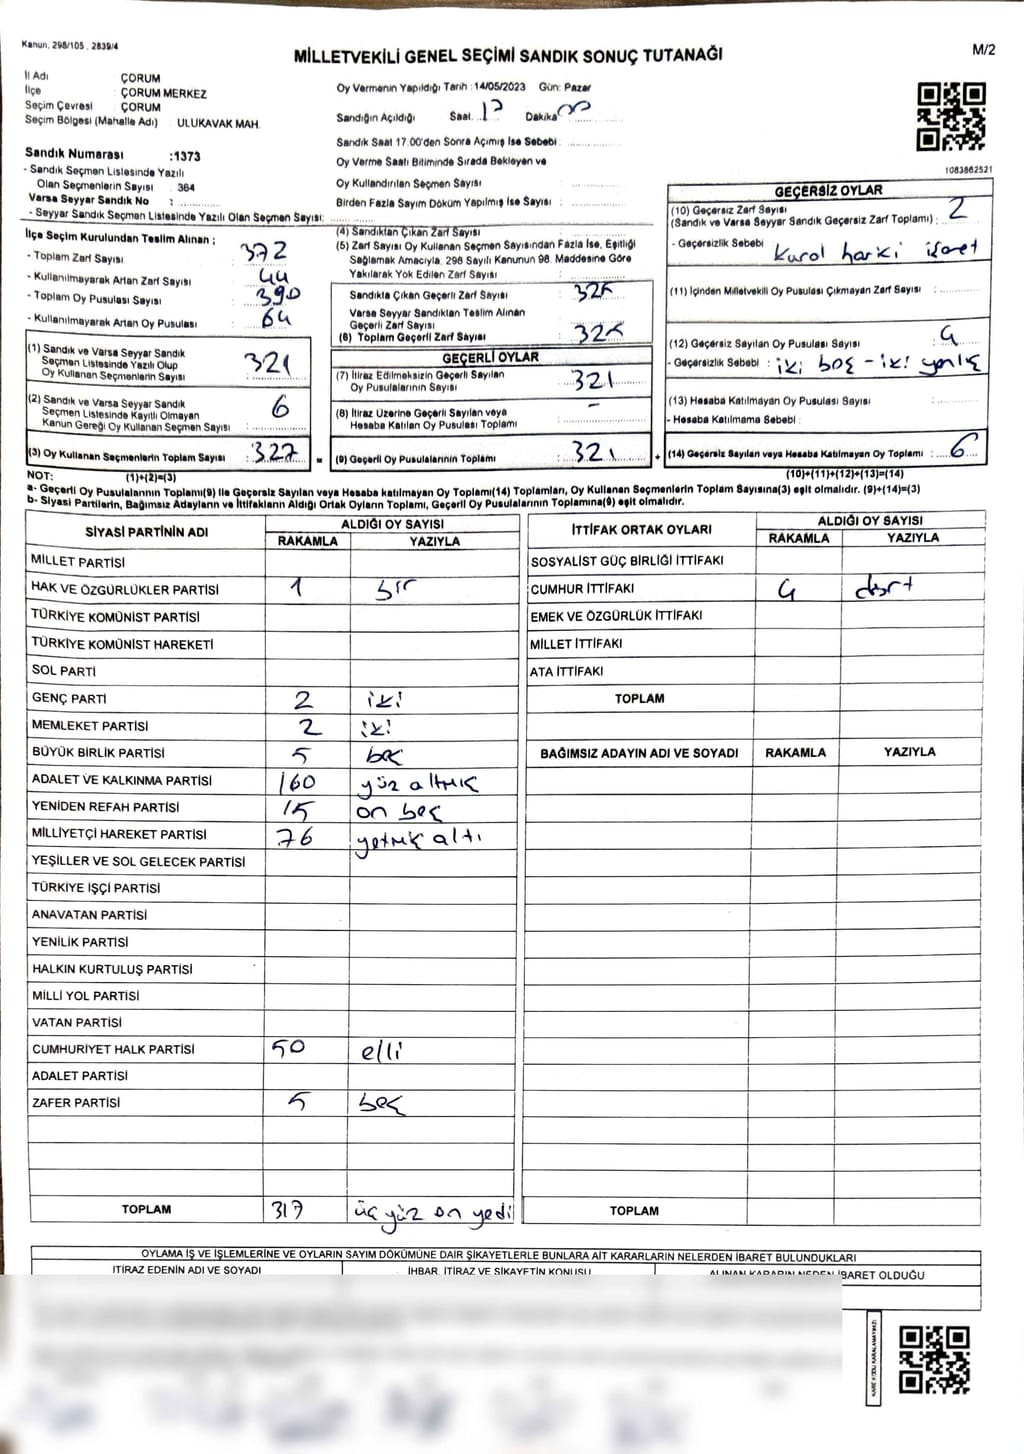 Kanun, 298/105, 2839/4
MİLLETVEKİLİ GENEL SEÇİMİ SANDIK SONUÇ TUTANAĞI
M/2
İl Adı ÇORUM
İlçe : ÇORUM MERKEZ
Seçim Çevresi : ÇORUM
Seçim Bölgesi (Mahalle Adı) : ULUKAVAK MAH.
Sandık Numarası :1373
- Sandık Seçmen Listesinde Yazılı
Olan Seçmenlerin Sayısı : 364
Varsa Seyyar Sandık No :
- Seyyar Sandık Seçmen Listesinde Yazılı Olan Seçmen Sayısı:
Oy Vermenin Yapıldığı Tarih :14/05/2023 Gün: Pazar
Sandığın Açıldığı Saat 17 Dakika 00
Sandık Saat 17.00'den Sonra Açılmış İse Sebebi :
Oy Verme Saati Bitiminde Sırada Bekleyen ve
Oy Kullandırılan Seçmen Sayısı :
Birden Fazla Sayım Döküm Yapılmış İse Sayısı :
1083862521
İlçe Seçim Kurulundan Teslim Alınan ;
- Toplam Zarf Sayısı : 372
- Kullanılmayarak Artan Zarf Sayısı : 44
- Toplam Oy Pusulası Sayısı : 390
- Kullanılmayarak Artan Oy Pusulası : 64
(1) Sandık ve Varsa Seyyar Sandık
Seçmen Listesinde Yazılı Olup
Oy Kullanan Seçmenlerin Sayısı : 321
(2) Sandık ve Varsa Seyyar Sandık
Seçmen Listesinde Kayıtlı Olmayan
Kanun Gereği Oy Kullanan Seçmen Sayısı : 6
(3) Oy Kullanan Seçmenlerin Toplam Sayısı : 327
(4) Sandıktan Çıkan Zarf Sayısı :
(5) Zarf Sayısı Oy Kullanan Seçmen Sayısından Fazla İse, Eşitliği
Sağlamak Amacıyla, 298 Sayılı Kanunun 98. Maddesine Göre
Yakılarak Yok Edilen Zarf Sayısı :
Sandıkta Çıkan Geçerli Zarf Sayısı : 325
Varsa Seyyar Sandıktan Teslim Alınan
Geçerli Zarf Sayısı :
(6) Toplam Geçerli Zarf Sayısı : 325
GEÇERLİ OYLAR
(7) İtiraz Edilmeksizin Geçerli Sayılan
Oy Pusulalarının Sayısı : 321
(8) İtiraz Üzerine Geçerli Sayılan veya
Hesaba Katılan Oy Pusulası Toplamı : -
= (9) Geçerli Oy Pusulalarının Toplamı : 321
GEÇERSİZ OYLAR
(10) Geçersiz Zarf Sayısı
(Sandık ve Varsa Seyyar Sandık Geçersiz Zarf Toplamı) : 2
- Geçersizlik Sebebi Kural harici işaret
(11) İçinden Milletvekili Oy Pusulası Çıkmayan Zarf Sayısı :
(12) Geçersiz Sayılan Oy Pusulası Sayısı : 4
- Geçersizlik Sebebi : iki boş - iki yırtık
(13) Hesaba Katılmayan Oy Pusulası Sayısı :
- Hesaba Katılmama Sebebi :
+ (14) Geçersiz Sayılan veya Hesaba Katılmayan Oy Toplamı : 6
NOT: (1)+(2)=(3) (10)+(11)+(12)+(13)=(14)
a- Geçerli Oy Pusulalarının Toplamı(9) ile Geçersiz Sayılan veya Hesaba katılmayan Oy Toplamı(14) Toplamları, Oy Kullanan Seçmenlerin Toplam Sayısına(3) eşit olmalıdır. (9)+(14)=(3)
b- Siyasi Partilerin, Bağımsız Adayların ve İttifakların Aldığı Ortak Oyların Toplamı, Geçerli Oy Pusulalarının Toplamına(9) eşit olmalıdır.
SİYASİ PARTİNİN ADI ALDIĞI OY SAYISI
RAKAMLA YAZIYLA
MİLLET PARTİSİ
HAK VE ÖZGÜRLÜKLER PARTİSİ 1 bir
TÜRKİYE KOMÜNİST PARTİSİ
TÜRKİYE KOMÜNİST HAREKETİ
SOL PARTİ
GENÇ PARTİ 2 iki
MEMLEKET PARTİSİ 2 iki
BÜYÜK BİRLİK PARTİSİ 5 beş
ADALET VE KALKINMA PARTİSİ 160 yüz altmış
YENİDEN REFAH PARTİSİ 15 on beş
MİLLİYETÇİ HAREKET PARTİSİ 76 yetmiş altı
YEŞİLLER VE SOL GELECEK PARTİSİ
TÜRKİYE İŞÇİ PARTİSİ
ANAVATAN PARTİSİ
YENİLİK PARTİSİ
HALKIN KURTULUŞ PARTİSİ
MİLLİ YOL PARTİSİ
VATAN PARTİSİ
CUMHURİYET HALK PARTİSİ 50 elli
ADALET PARTİSİ
ZAFER PARTİSİ 5 beş
TOPLAM 317 üç yüz on yedi
İTTİFAK ORTAK OYLARI ALDIĞI OY SAYISI
RAKAMLA YAZIYLA
SOSYALİST GÜÇ BİRLİĞİ İTTİFAKI
CUMHUR İTTİFAKI 4 dört
EMEK VE ÖZGÜRLÜK İTTİFAKI
MİLLET İTTİFAKI
ATA İTTİFAKI
TOPLAM
BAĞIMSIZ ADAYIN ADI VE SOYADI RAKAMLA YAZIYLA
TOPLAM
OYLAMA İŞ VE İŞLEMLERİNE VE OYLARIN SAYIM DÖKÜMÜNE DAİR ŞİKAYETLERLE BUNLARA AİT KARARLARIN NELERDEN İBARET BULUNDUKLARI
İTİRAZ EDENİN ADI VE SOYADI İHBAR, İTİRAZ VE ŞİKAYETİN KONUSU ALINAN KARARIN NEDEN İBARET OLDUĞU
KARE KODU KARALAMAYINIZ!